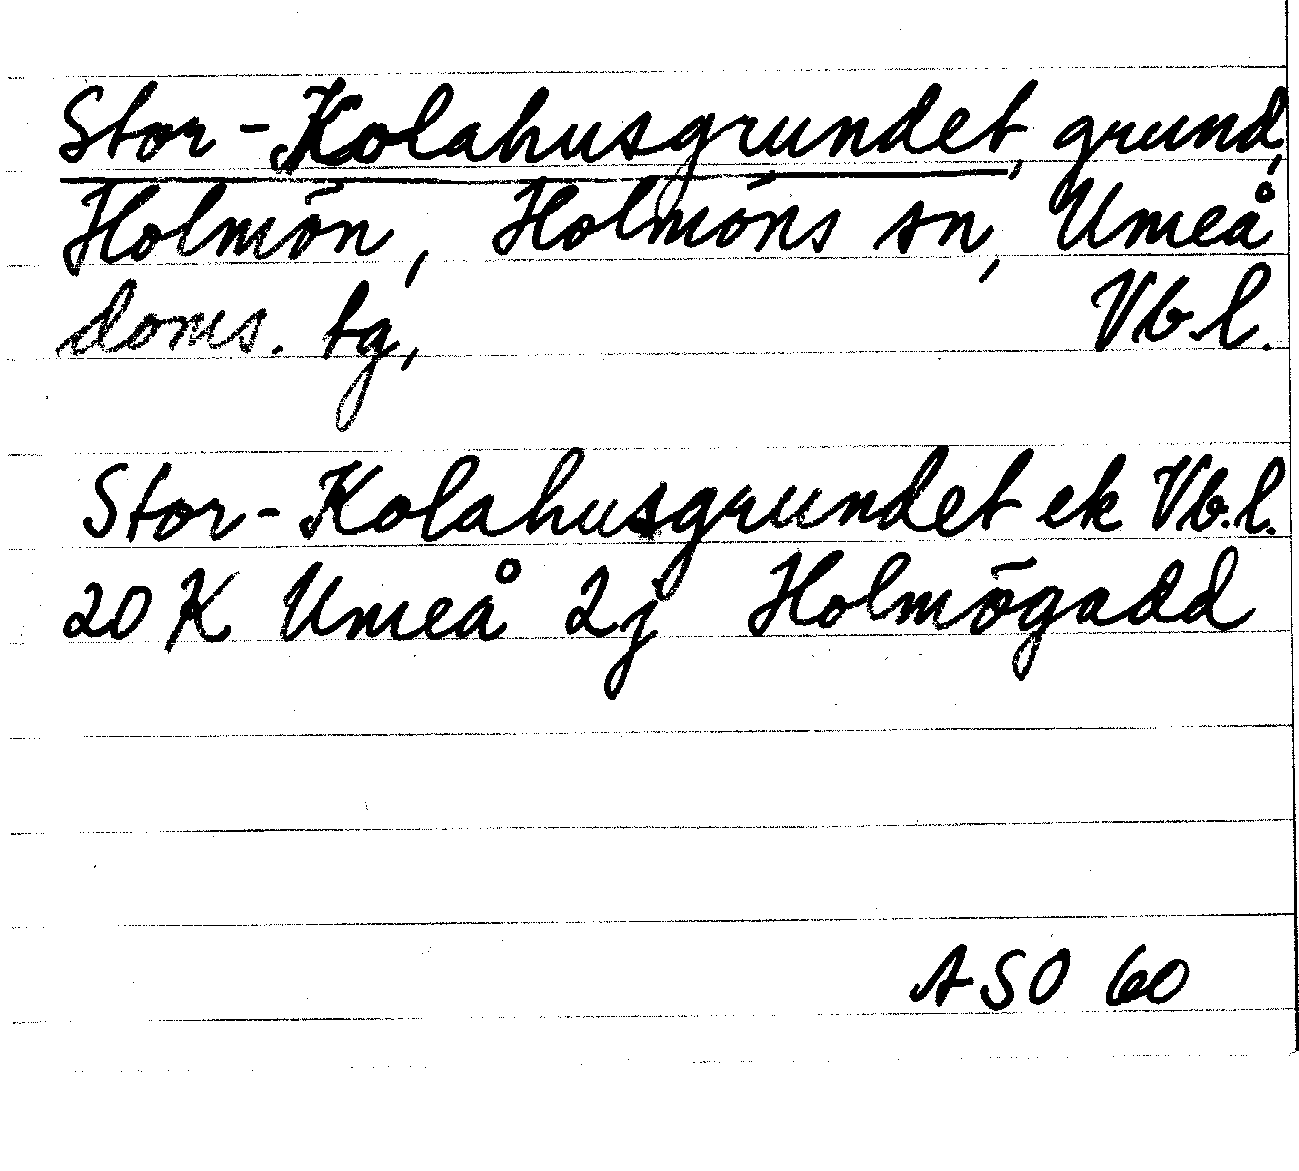 Stor-Kolahusgrundet, grund,
Holmön, Holmöns sn, Umeå
doms. tg, Vb.l.
Stor-Kolahusgrundet ek Vb.l.
20 K Umeå 2j Holmögadd
ASO 60